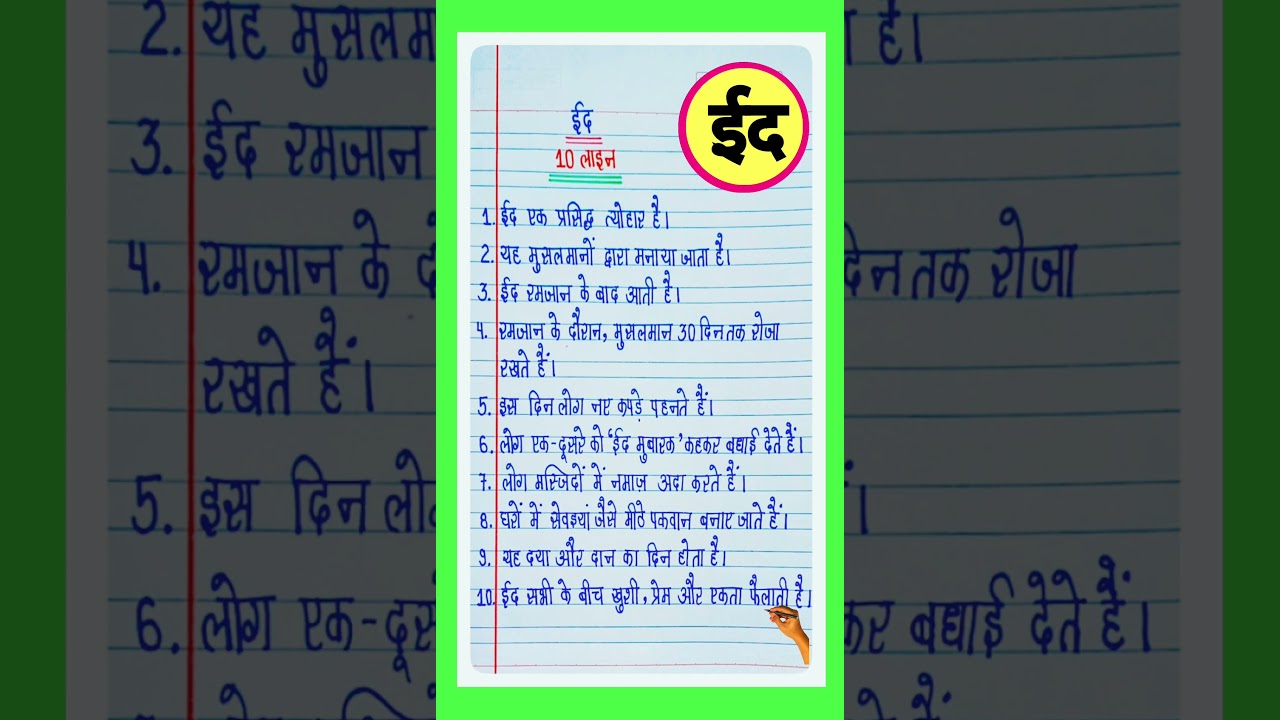 ईद
ईद
10 लाइन
1. ईद एक प्रसिद्ध त्योहार है।
2. यह मुसलमानों द्वारा मनाया जाता है।
3. ईद रमजान के बाद आती है।
4. रमजान के दौरान, मुसलमान 30 दिन तक रोजा
रखते हैं।
5. इस दिन लोग नए कपड़े पहनते हैं।
6. लोग एक-दूसरे को ‘ईद मुबारक’ कहकर बधाई देते हैं।
7. लोग मस्जिदों में नमाज़ अदा करते हैं।
8. घरों में सेवइयां जैसे मीठे पकवान बनाए जाते हैं।
9. यह दया और दान का दिन होता है।
10. ईद सभी के बीच खुशी, प्रेम और एकता फैलाती है।